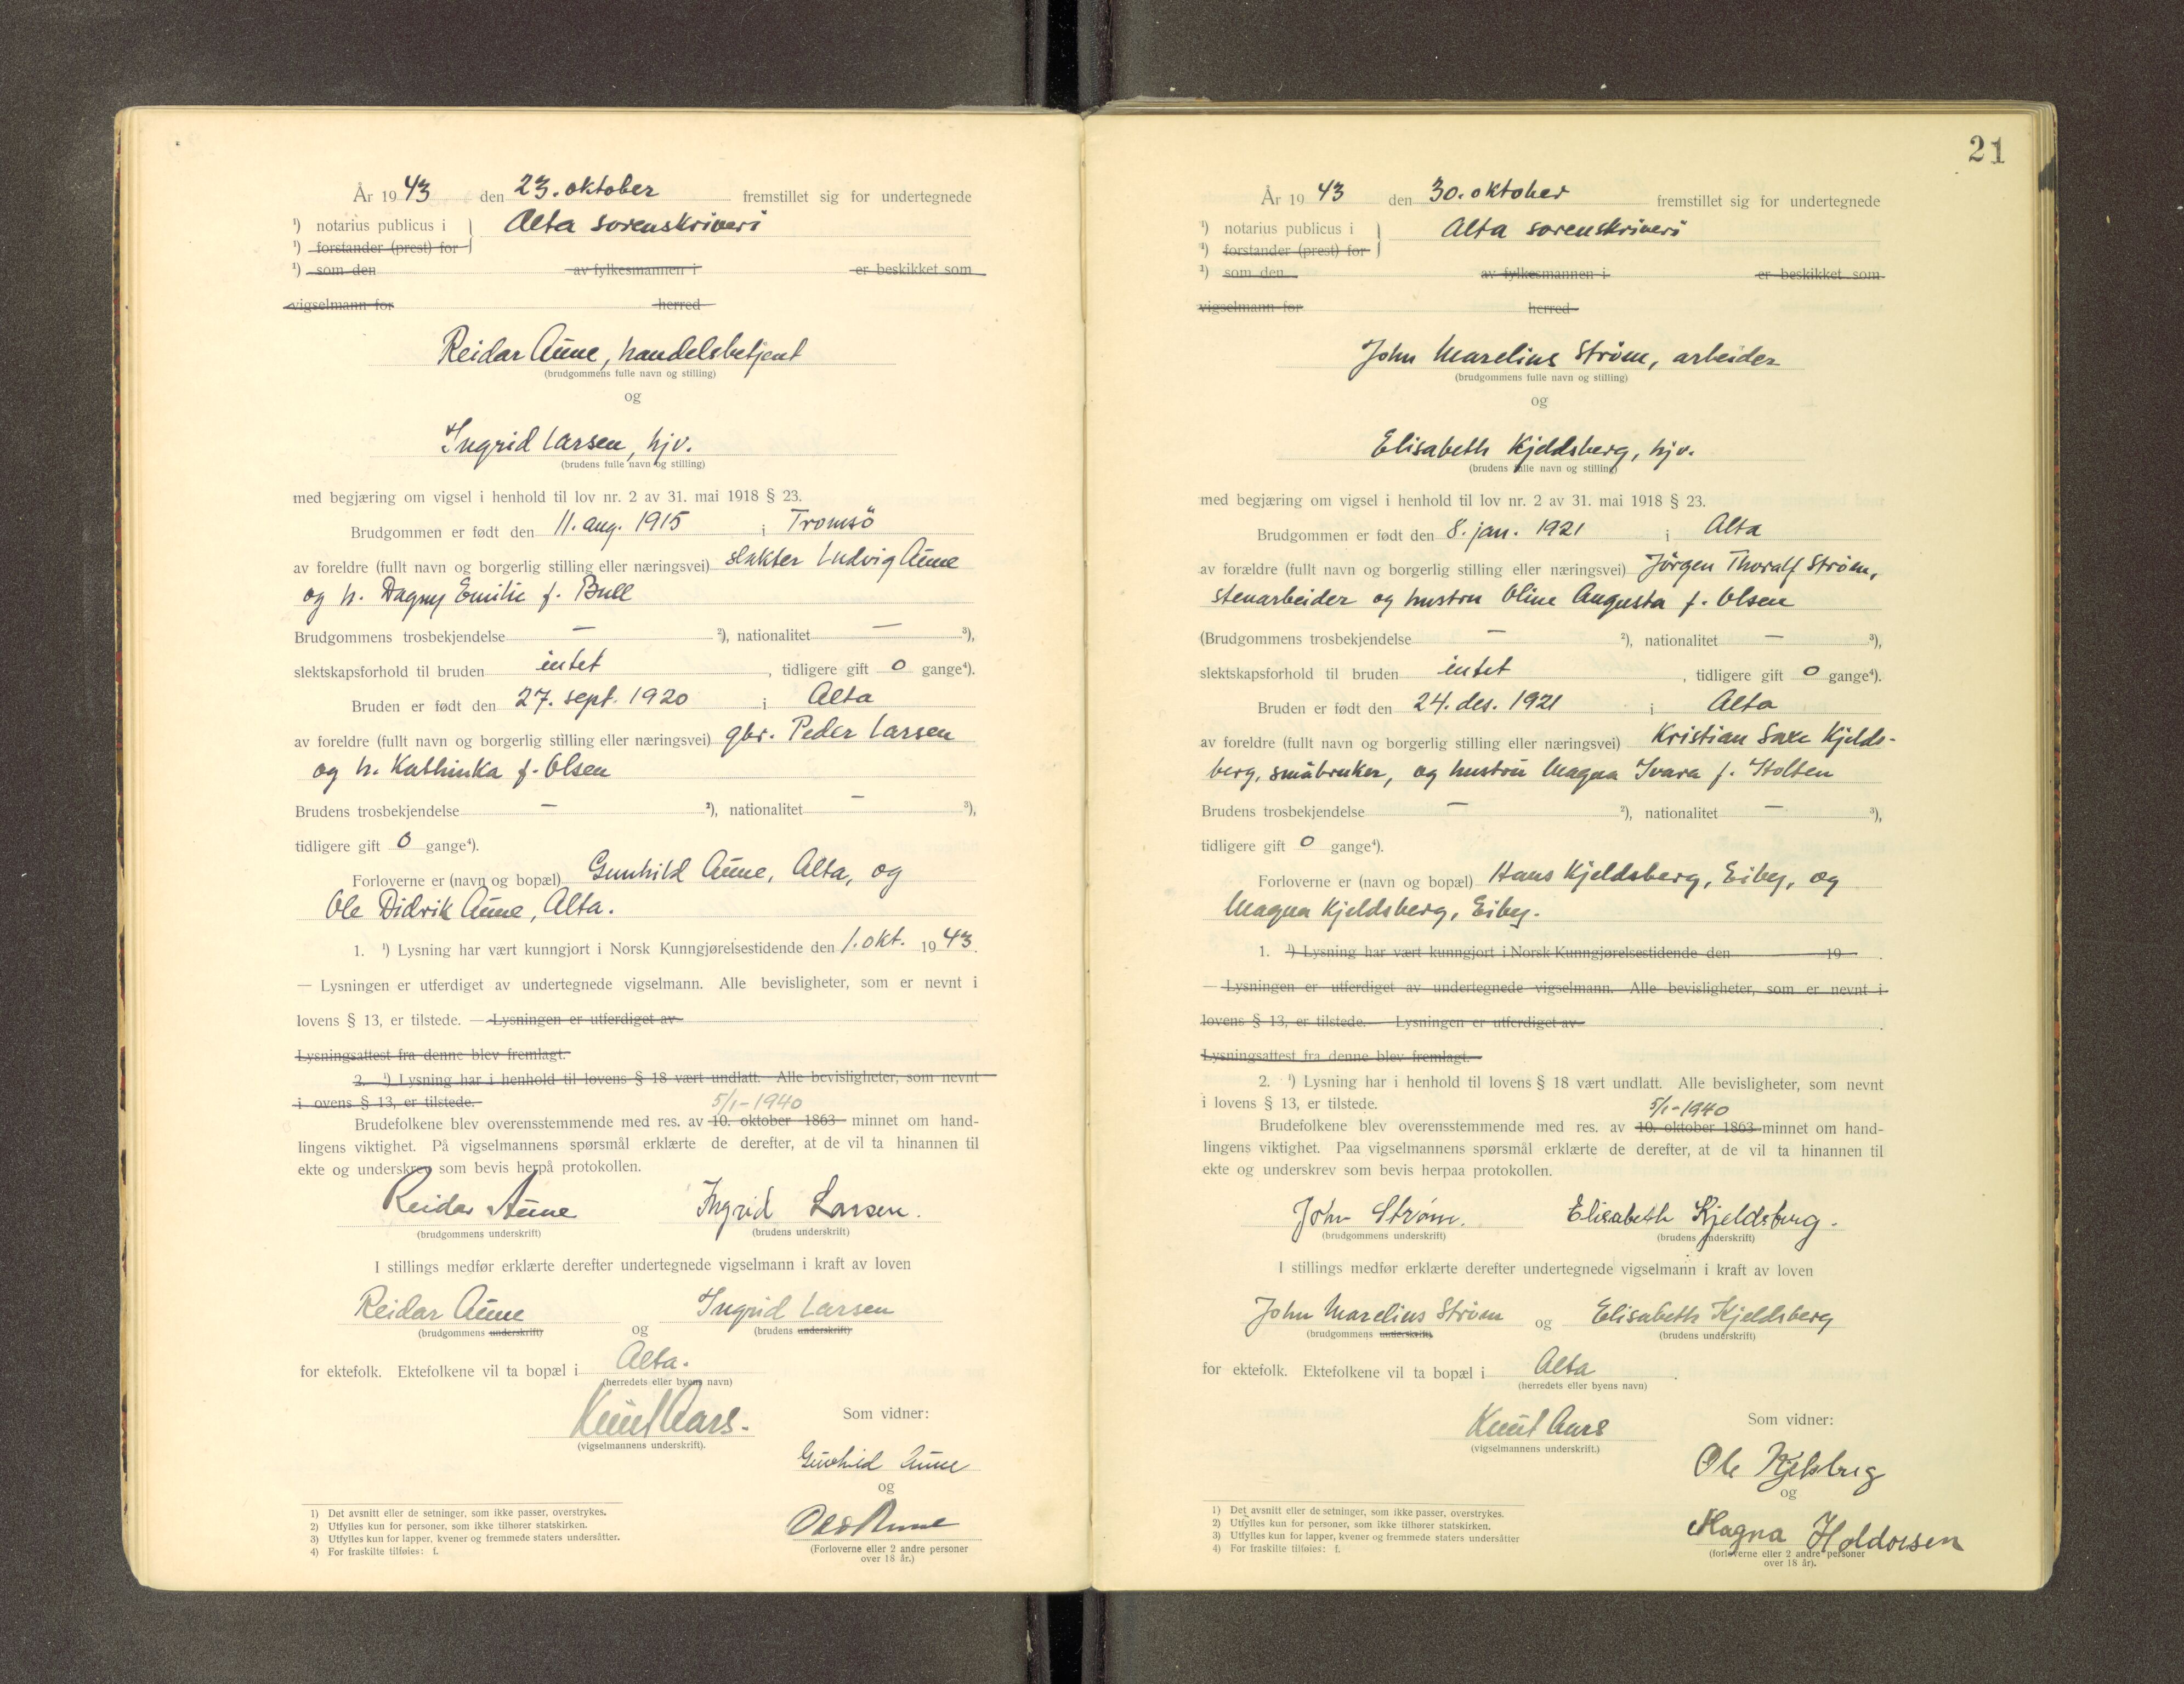 År 1943 den 23. oktober fremstillet sig for undertegnede
¹) notarius publicus i } Alta sorenskriveri
¹) forstander (prest) for
¹) som den av fylkesmannen i er beskikket som
vigselmann for herred
Reidar Aune, handelsbetjent
(brudgommens fulle navn og stilling)
og
Ingrid Larsen, hjv.
(brudens fulle navn og stilling)
med begjæring om vigsel i henhold til lov nr. 2 av 31. mai 1918 § 23.
Brudgommen er født den 11. aug. 1915 i Tromsö
av foreldre (fullt navn og borgerlig stilling eller næringsvei) slakter Ludvig Aune
og h. Dagny Emilie f. Bull
Brudgommens trosbekjendelse — ²), nationalitet — ³),
slektskapsforhold til bruden intet, tidligere gift 0 gange⁴).
Bruden er født den 27. sept. 1920 i Alta
av foreldre (fullt navn og borgerlig stilling eller næringsvei) gbr. Peder Larsen
og h. Kathinka f. Olsen
Brudens trosbekjendelse — ²), nationalitet — ³),
tidligere gift 0 gange⁴).
Forloverne er (navn og bopæl) Gunhild Aune, Alta, og
Ole Didrik Aune, Alta.
1. ¹) Lysning har vært kunngjort i Norsk Kunngjørelsestidende den 1. okt. 1943.
— Lysningen er utferdiget av undertegnede vigselmann. Alle bevisligheter, som er nevnt i
lovens § 13, er tilstede. — Lysningen er utferdiget av
Lysningsattest fra denne blev fremlagt.
2. ¹) Lysning har i henhold til lovens § 18 vært undlatt. Alle bevisligheter, som nevnt
i ovens § 13, er tilstede.
5/1-1940
Brudefolkene blev overensstemmende med res. av 10. oktober 1863 minnet om hand-
lingens viktighet. På vigselmannens spørsmål erklærte de derefter, at de vil ta hinannen til
ekte og underskrev som bevis herpå protokollen.
Reidar Aune Ingrid Larsen.
(brudgommens underskrift) (brudens underskrift)
I stillings medfør erklærte derefter undertegnede vigselmann i kraft av loven
Reidar Aune og Ingrid Larsen
(brudgommens underskrift) (brudens underskrift)
for ektefolk. Ektefolkene vil ta bopæl i Alta.
(herredets eller byens navn)
Knut Aars.
(vigselmannens underskrift).
Som vidner:
Gunhild Aune
og
Ole D Aune
(Forloverne eller 2 andre personer
over 18 år.)
1) Det avsnitt eller de setninger, som ikke passer, overstrykes.
2) Utfylles kun for personer, som ikke tilhører statskirken.
3) Utfylles kun for lapper, kvener og fremmede staters undersåtter.
4) For fraskilte tilføies: f.
21
År 1943 den 30. oktober fremstillet sig for undertegnede
¹) notarius publicus i } Alta sorenskriveri
¹) forstander (prest) for
¹) som den av fylkesmannen i er beskikket som
vigselmann for herred
John Marelius Strøm, arbeider
(brudgommens fulle navn og stilling)
og
Elisabeth Kjeldsberg, hjv.
(brudens fulle navn og stilling)
med begjæring om vigsel i henhold til lov nr. 2 av 31. mai 1918 § 23.
Brudgommen er født den 8. jan. 1921 i Alta
av forældre (fullt navn og borgerlig stilling eller næringsvei) Jörgen Thoralf Strøm,
stenarbeider og hustru Oline Augusta f. Olsen
(Brudgommens trosbekjendelse — ²), nationalitet — ³),
slektskapsforhold til bruden intet, tidligere gift 0 gange⁴).
Bruden er født den 24. des. 1921 i Alta
av foreldre (fullt navn og borgerlig stilling eller næringsvei) Kristian Saxe Kjelds-
berg, småbruker, og hustru Magna Ivara f. Holten
Brudens trosbekjendelse — ²), nationalitet — ³),
tidligere gift 0 gange⁴).
Forloverne er (navn og bopæl) Hans Kjeldsberg, Eiby, og
Magna Kjeldsberg, Eiby.
1. ¹) Lysning har vært kunngjort i Norsk Kunngjørelsestidende den 19 .
— Lysningen er utferdiget av undertegnede vigselmann. Alle bevisligheter, som er nevnt i
lovens § 13, er tilstede. — Lysningen er utferdiget av .
Lysningsattest fra denne blev fremlagt.
2. ¹) Lysning har i henhold til lovens § 18 vært undlatt. Alle bevisligheter, som nevnt
i lovens § 13, er tilstede.
5/1-1940
Brudefolkene blev overensstemmende med res. av 10. oktober 1863 minnet om hand-
lingens viktighet. Paa vigselmannens spørsmål erklærte de derefter, at de vil ta hinannen til
ekte og underskrev som bevis herpaa protokollen.
John Strøm. Elisabeth Kjeldsberg.
(brudgommens underskrift) (brudens underskrift)
I stillings medfør erklærte derefter undertegnede vigselmann i kraft av loven
John Marelius Strøm og Elisabeth Kjeldsberg
(brudgommens underskrift) (brudens underskrift)
for ektefolk. Ektefolkene vil ta bopæl i Alta.
(herredets eller byens navn)
Knut Aars
(vigselmannens underskrift.)
Som vidner:
Ole
og
Magna Holdorsen
(forloverne eller 2 andre personer
over 18 år).
1) Det avsnitt eller de setninger, som ikke passer, overstrykes.
2) Utfylles kun for personer, som ikke tilhører statskirken.
3) Utfylles kun for lapper, kvener og fremmede staters undersåtter
4) For fraskilte tilføies: f.